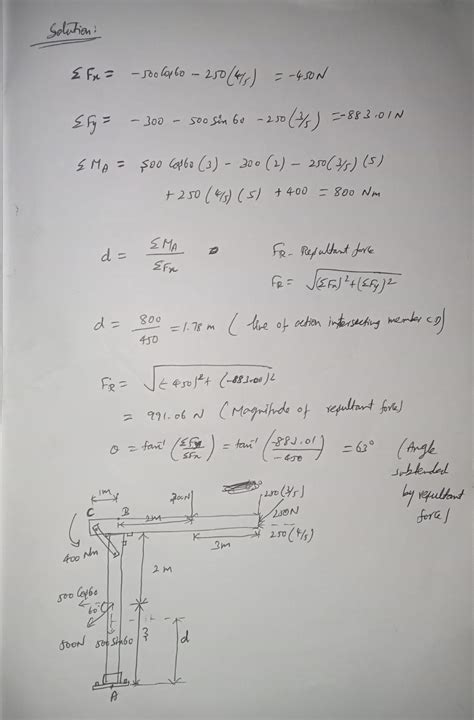 Solution:
ΣFx = -500 Cos 60 - 250 (4/5) = -450N
ΣFy = -300 - 500 Sin 60 - 250 (3/5) = -883.01 N
ΣMA = 500 Cos 60 (3) - 300 (2) - 250 (3/5) (5)
+ 250 (4/5) (5) + 400 = 800 Nm
d = ΣMA / ΣFx
FR - Resultant force
FR = √(ΣFx)2+(ΣFy)2
d = 800 / 450 = 1.78 m ( line of action intersecting member CD)
FR = √(-450)2+ (-883.00)2
= 991.06 N ( Magnitude of resultant force)
θ = tan-1 (ΣFy / ΣFx) = tan-1 (-883.01 / -450) = 63° (Angle
subtended
by resultant
force)
1m
C B
2m
300N
250 (3/5)
250N
250 (4/5)
3m
400 Nm
2 m
500 Cos 60
60°
500N 500 Sin 60
3
d
A